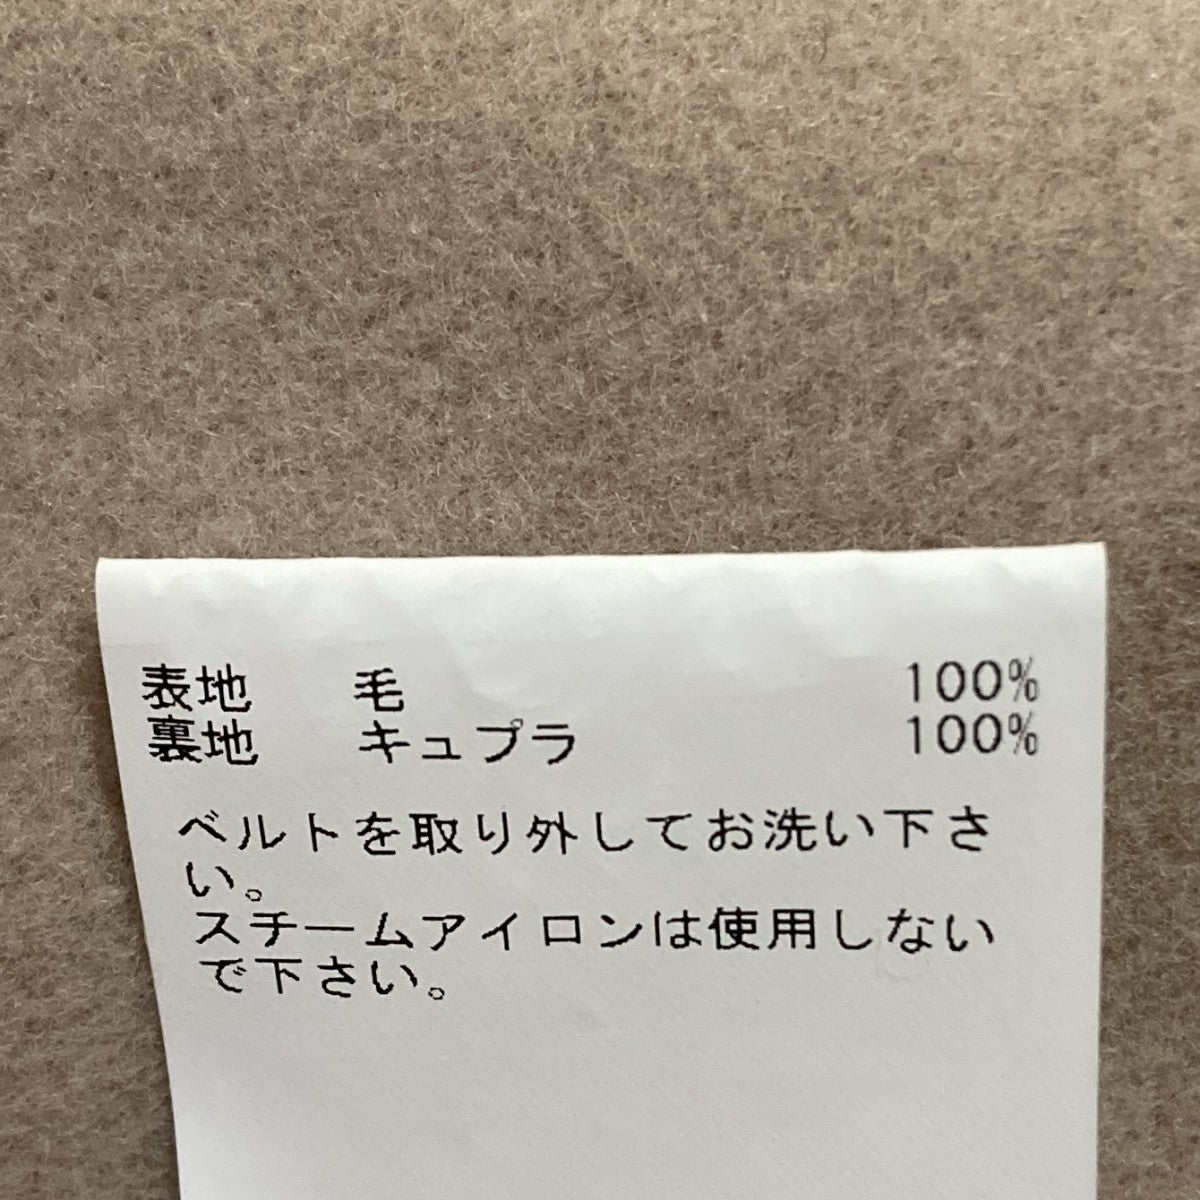 表地 毛 100%
裏地 キュプラ 100%
ベルトを取り外してお洗い下さ
い。
スチームアイロンは使用しない
で下さい。